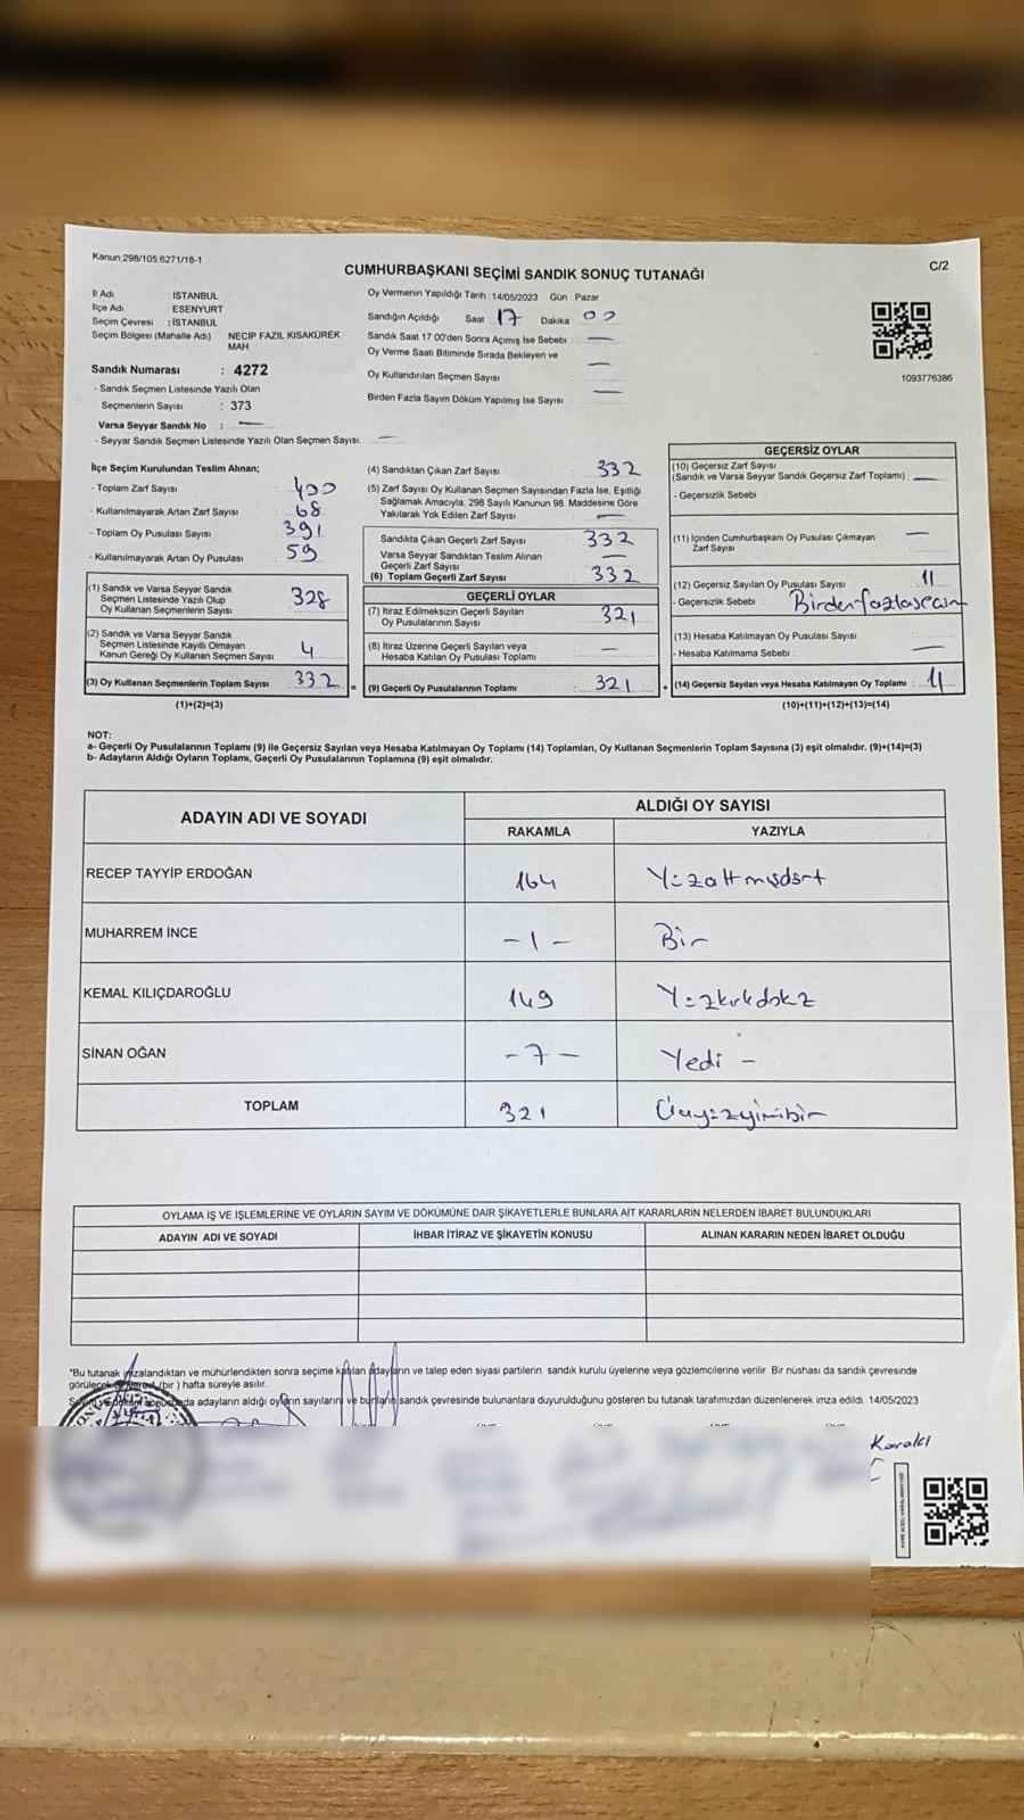 Kanun 298/105 6271/18-1
C/2
CUMHURBAŞKANI SEÇİMİ SANDIK SONUÇ TUTANAĞI
İl Adı İSTANBUL
İlçe Adı ESENYURT
Seçim Çevresi : İSTANBUL
Seçim Bölgesi (Mahalle Adı) NECİP FAZIL KISAKÜREK MAH
Sandık Numarası : 4272
- Sandık Seçmen Listesinde Yazılı Olan
Seçmenlerin Sayısı : 373
Varsa Seyyar Sandık No : —
- Seyyar Sandık Seçmen Listesinde Yazılı Olan Seçmen Sayısı —
Oy Vermenin Yapıldığı Tarih : 14/05/2023 Gün : Pazar
Sandığın Açıldığı Saat 17 Dakika 00
Sandık Saat 17 00'den Sonra Açılmış İse Sebebi —
Oy Verme Saati Bitiminde Sırada Bekleyen ve
Oy Kullandırılan Seçmen Sayısı —
Birden Fazla Sayım Döküm Yapılmış İse Sayısı —
1093776386
İlçe Seçim Kurulundan Teslim Alınan;
- Toplam Zarf Sayısı 400
- Kullanılmayarak Artan Zarf Sayısı 68
- Toplam Oy Pusulası Sayısı 391
- Kullanılmayarak Artan Oy Pusulası 59
(1) Sandık ve Varsa Seyyar Sandık
Seçmen Listesinde Yazılı Olup
Oy Kullanan Seçmenlerin Sayısı 328
(2) Sandık ve Varsa Seyyar Sandık
Seçmen Listesinde Kayıtlı Olmayan
Kanun Gereği Oy Kullanan Seçmen Sayısı 4
(3) Oy Kullanan Seçmenlerin Toplam Sayısı 332
(1)+(2)=(3)
(4) Sandıktan Çıkan Zarf Sayısı 332
(5) Zarf Sayısı Oy Kullanan Seçmen Sayısından Fazla İse, Eşitliği
Sağlamak Amacıyla, 298 Sayılı Kanunun 98. Maddesine Göre
Yakılarak Yok Edilen Zarf Sayısı —
Sandıkta Çıkan Geçerli Zarf Sayısı 332
Varsa Seyyar Sandıktan Teslim Alınan
Geçerli Zarf Sayısı —
(6) Toplam Geçerli Zarf Sayısı 332
GEÇERLİ OYLAR
(7) İtiraz Edilmeksizin Geçerli Sayılan
Oy Pusulalarının Sayısı 321
(8) İtiraz Üzerine Geçerli Sayılan veya
Hesaba Katılan Oy Pusulası Toplamı —
= (9) Geçerli Oy Pusulalarının Toplamı : 321
GEÇERSİZ OYLAR
(10) Geçersiz Zarf Sayısı
(Sandık ve Varsa Seyyar Sandık Geçersiz Zarf Toplamı) —
- Geçersizlik Sebebi
(11) İçinden Cumhurbaşkanı Oy Pusulası Çıkmayan
Zarf Sayısı —
(12) Geçersiz Sayılan Oy Pusulası Sayısı 11
- Geçersizlik Sebebi
(13) Hesaba Katılmayan Oy Pusulası Sayısı
- Hesaba Katılmama Sebebi —
+ (14) Geçersiz Sayılan veya Hesaba Katılmayan Oy Toplamı : 11
(10)+(11)+(12)+(13)=(14)
NOT:
a- Geçerli Oy Pusulalarının Toplamı (9) ile Geçersiz Sayılan veya Hesaba Katılmayan Oy Toplamı (14) Toplamları, Oy Kullanan Seçmenlerin Toplam Sayısına (3) eşit olmalıdır. (9)+(14)=(3)
b- Adayların Aldığı Oyların Toplamı, Geçerli Oy Pusulalarının Toplamına (9) eşit olmalıdır.
ADAYIN ADI VE SOYADI ALDIĞI OY SAYISI
RAKAMLA YAZIYLA
RECEP TAYYİP ERDOĞAN 164 Yüzaltmışdört
MUHARREM İNCE -1- Bir
KEMAL KILIÇDAROĞLU 149 Yüzkırkdokz
SİNAN OĞAN -7- Yedi -
TOPLAM 321 Üçyüzyirmibir
OYLAMA İŞ VE İŞLEMLERİNE VE OYLARIN SAYIM VE DÖKÜMÜNE DAİR ŞİKAYETLERLE BUNLARA AİT KARARLARIN NELERDEN İBARET BULUNDUKLARI
ADAYIN ADI VE SOYADI İHBAR İTİRAZ VE ŞİKAYETİN KONUSU ALINAN KARARIN NEDEN İBARET OLDUĞU
"Bu tutanak imzalandıktan ve mühürlendikten sonra seçime katılan adayların ve talep eden siyasi partilerin sandık kurulu üyelerine veya gözlemcilerine verilir. Bir nüshası da sandık çevresinde
(bir) hafta süreyle asılır.
adayların aldığı oyların sayılarını ve bunların sandık çevresinde bulunanlara duyurulduğunu gösteren bu tutanak tarafımızdan düzenlenerek imza edildi. 14/05/2023